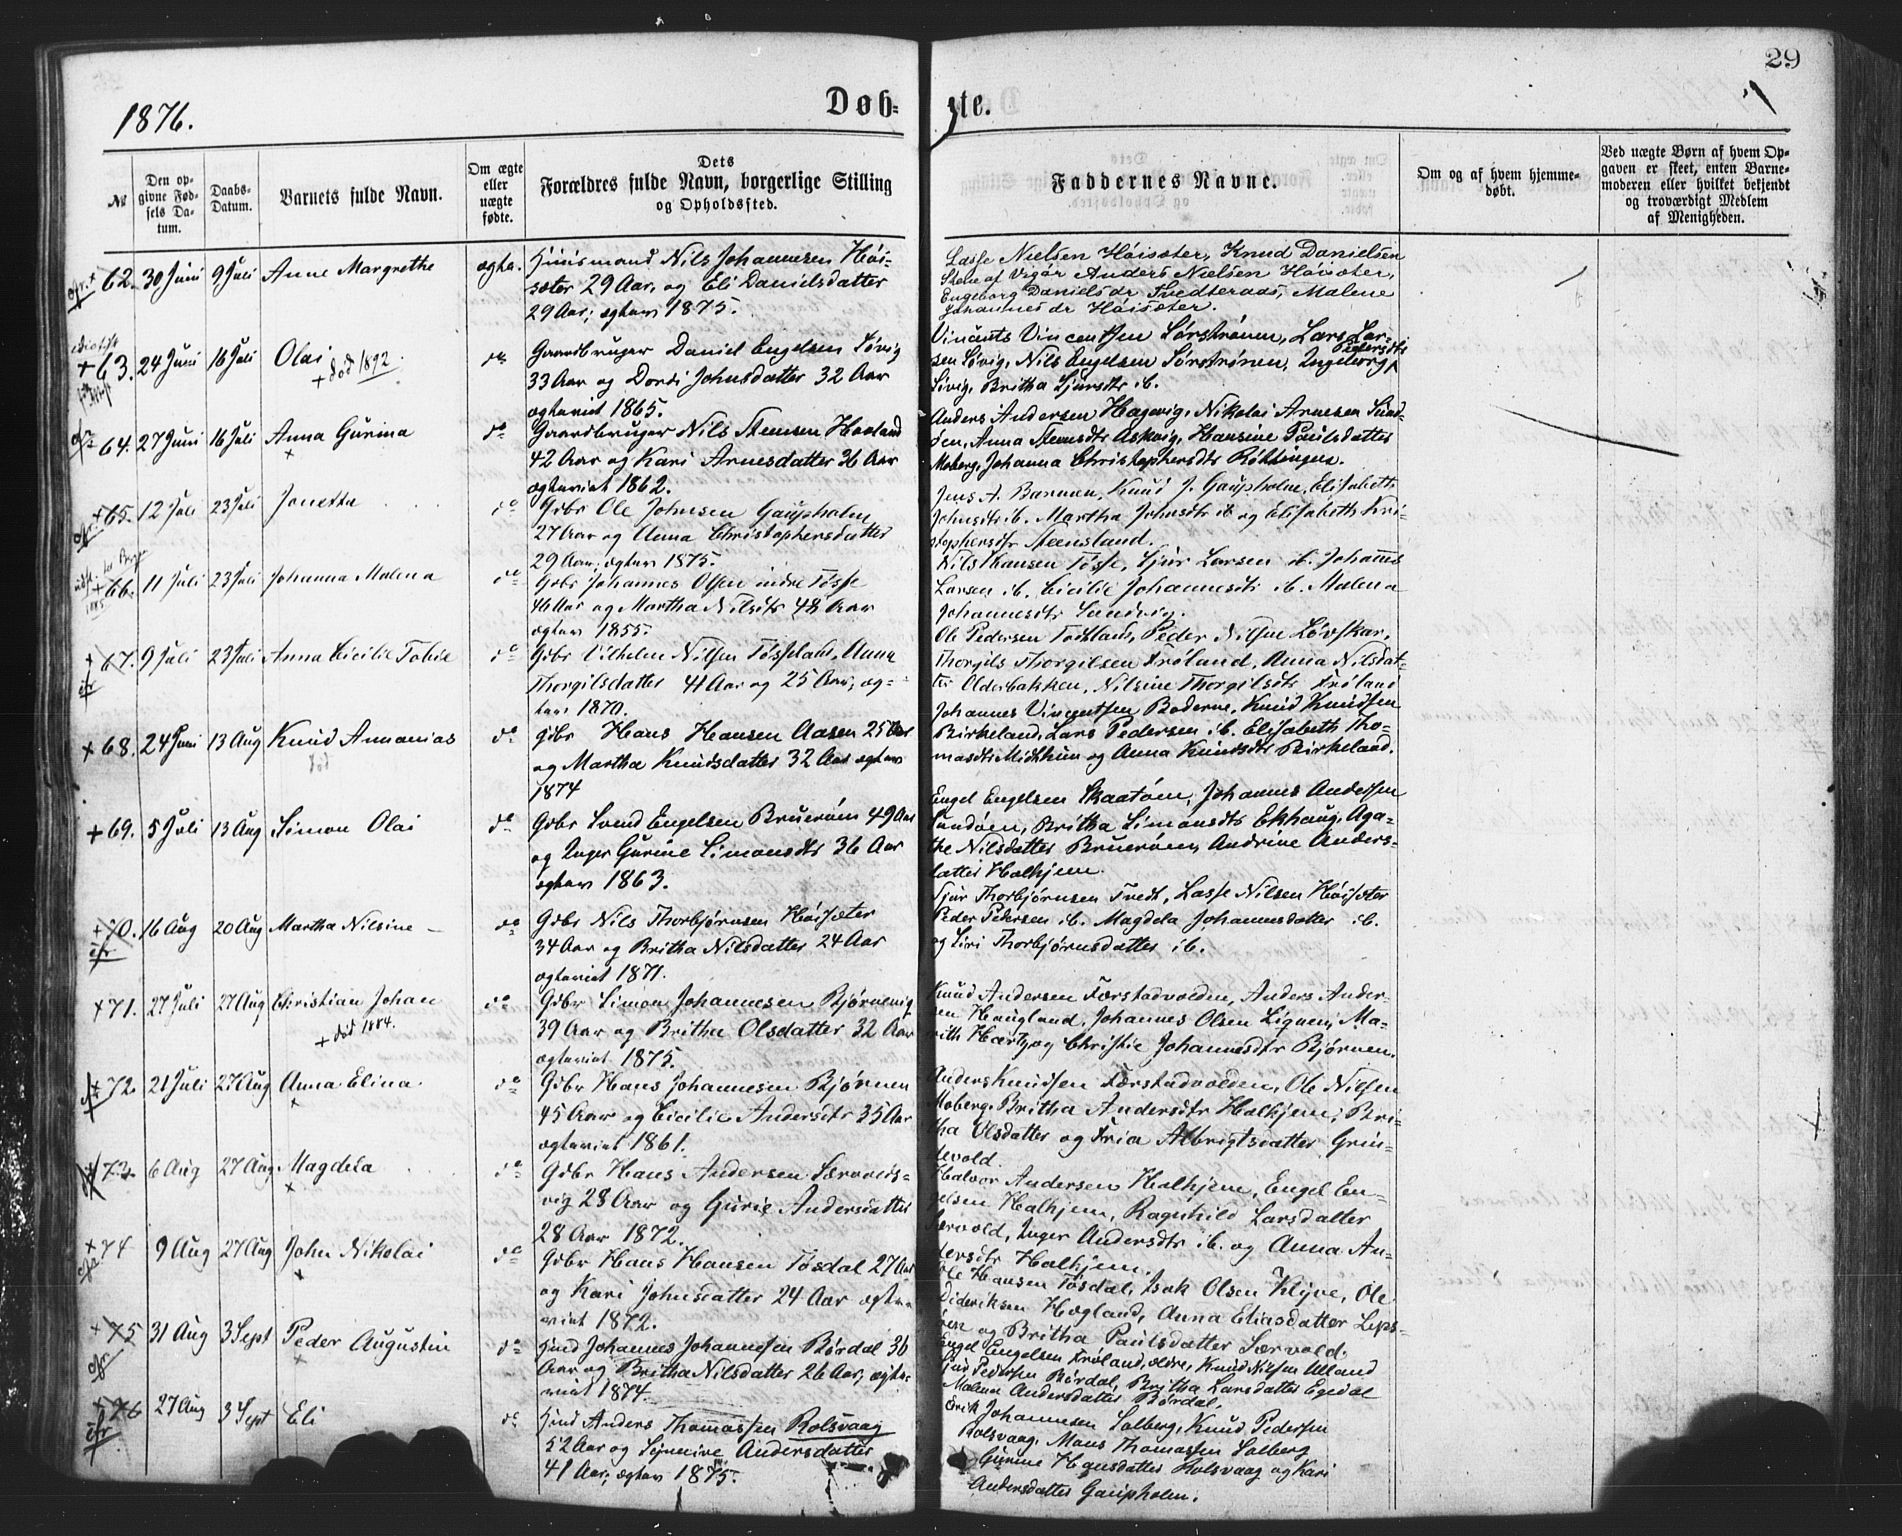 29
1876.
Døb-
te.
№
Den op-
givne Fød-
sels Da-
tum.
Daabs-
Datum.
Barnets fulde Navn.
Om ægte
eller
uægte
fødte.
Dets
Forældres fulde Navn, borgerlige Stilling
og Opholdssted.
Faddernes Navne.
Om og af hvem hjemme-
døbt.
Ved uægte Børn af hvem Op-
gaven er skeet, enten Barne-
moderen eller hvilket bekjendt
og troværdigt Medlem
af Menigheden.
62. 30 Juni 9 Juli Anne Margrethe ægte. Huusmand Nils Johannesen Høi-
sæter 29 Aar, og Eli Danielsdatter
29 Aar; ægtev 1875.
Lasse Nielsen Høisæter, Knud Danielsen
Anders Nielsen Høisæter,
Engeborg Danielsdr Tvedteraas, Malene
Johannesdr Høisæter.
+ 63. 24 Juni 16 Juli Olai do Gaardbruger Daniel Engelsen Søvig
+ død 1892.
33 Aar og Dordi Johnsdatter 32 Aar
ægteviet 1865.
Vincents Vincentsen Sørstrønen, Lars Lar-
sen Søvig, Nils Engelsen Sørstrønen, Ingeborg Pedersdtr
Søvig, Britha Sjursdtr ib.
64. 27 Juni 16 Juli Anna Gurina do Gaardbruger Nils Stensen Hovland
42 Aar og Kari Arnesdatter 36 Aar
ægteviet 1862.
Anders Andersen Hagevig, Nikolai Arnesen Sund-
den, Anna Stensdtr Askvig, Hansine Paulsdatter
Moberg, Johanna Christophersdtr Røttingen.
+ 65. 12 Juli 23 Juli Jonetta do Gdbr Ole Johnsen Gaupholm
27 Aar og Anna Christophersdatter
29 Aar; ægtev 1875.
Jens A. Barmen, Knud J. Gaupholm, Elisabeth
Johnsdtr ib. Martha Johnsdtr ib og Elisabeth Kri-
stophersdtr Steensland.
+ 66. 11 Juli 23 Juli Johanna Malena do Gdbr Johannes Olsen indre Tøsse
1885.
46 Aar og Martha Nilsdtr 48 Aar
ægtev 1855.
Nils Hansen Tøsse, Sjur Larsen ib. Johannes
Larsen ib. Cicilie Johannesdtr ib. Malena
Johannesdtr Sundvig.
+ 67. 9 Juli 23 Juli Anna Cicilie Tobie do Gdbr Vilhelm Nilsen Tøsseland, Anna
Thorgilsdatter 41 Aar og 25 Aar, æg-
tev 1870.
Ole Pedersen Todtland, Peder Nilsen Løvskar,
Thorgils Thorgilsen Frøland, Anna Nilsdat-
ter Olderbakken, Nilsine Thorgilsdtr Frøland
+ 68. 24 Juni 13 Aug Knud Annanias do Gdbr Hans Hansen Aasen 25 Aar
død
og Martha Knudsdatter 32 Aar ægtev
1874
Johannes Vincentsen Baderne, Knud Knudsen
Birkeland, Lars Pedersen ib. Elisabeth Tho-
masdtr Midthun og Anna Knudsdtr Birkeland.
+ 69. 5 Juli 13 Aug Simon Olai do Gdbr Svend Engelsen Bruerøen 49 Aar
og Inger Gurine Simonsdtr 36 Aar
ægtev 1863.
Engel Engelsen Skaatøen, Johannes Andersen
Sundøen, Britha Simonsdtr Ekhaug, Aga-
the Nilsdatter Bruerøen, Andrine Anders-
datter Halhjem.
+ 70. 16 Aug 20 Aug Martha Nilsine do Gdbr Nils Thorbjørnsen Høisæter
34 Aar og Britha Nilsdatter 24 Aar
ægteviet 1871.
Sjur Thorbjørnsen Tvedt, Lasse Nilsen Høisæter
Peder Pedersen ib. Magdela Johannesdatter ib.
og Siri Thorbjørnsdatter ib.
+ 71. 27 Juli 27 Aug Christian Johan do Gdbr Simon Johannesen Bjørnevig
+ død 1884.
39 Aar og Britha Olsdatter 32 Aar
ægteviet 1875.
Knud Andersen Færstadvolden, Anders Ander-
sen Haugland, Johannes Olsen Liqven, Ma-
rith Hertz og Christie Johannesdtr Bjørnen.
+ 72. 21 Juli 27 Aug Anna Elina do Gdbr Hans Johannesen Bjørnen
45 Aar og Cicilie Andersdtr 35 Aar
ægteviet 1861.
Anders Knudsen Færstadvolden, Ole Nilsen
Moberg, Britha Andersdtr Halhjem, Bri-
tha Olsdatter og Fria Albrigtsdatter Grin-
devold.
73. 6 Aug 27 Aug Magdela do Gdbr Hans Andersen Særvolds-
vig 28 Aar og Gurie Andersdatter
28 Aar 1872.
Halvor Andersen Halhjem, Engel En-
gelsen Halhjem, Ragnhild Larsdatter
Særvold, Inger Andersdtr ib. og Anna An-
dersdtr Halhjem.
+ 74 9 Aug 27 Aug John Nikolai do Gdbr Hans Hansen Tøsdal 27 Aar
og Kari Johnsdatter 24 Aar ægte-
viet 1872.
Ole Hansen Tøsdal, Isak Olsen Klyve, Ole
Dideriksen Hægland, Anna Eliasdatter Leps-
øen og Britha Paulsdatter Særvold.
+ 75 31 Aug 3 Sept Peder Augustin do Huusmd Johannes Johannesen Børdal 36
Aar og Britha Nilsdatter 26 Aar, ægte-
viet 1874.
Engel Engelsen Frøland, ældre, Knud Nilsen Ulland
Pedersen Børdal, Britha Larsdatter Egedal
Malene Andersdatter Børdal.
+ 76 27 Aug 3 Sept Eli do Huusmd Anders Thomassen Rolsvaag
52 Aar og Synneve Andersdatter
41 Aar; ægtev 1875.
Erik Johannesen Solberg, Knud Pedersen
Rolsvaag, Mons Thomassen Solberg
Gurine Hansdatter Rolsvaag og Kari
Andersdatter Gaupholm.